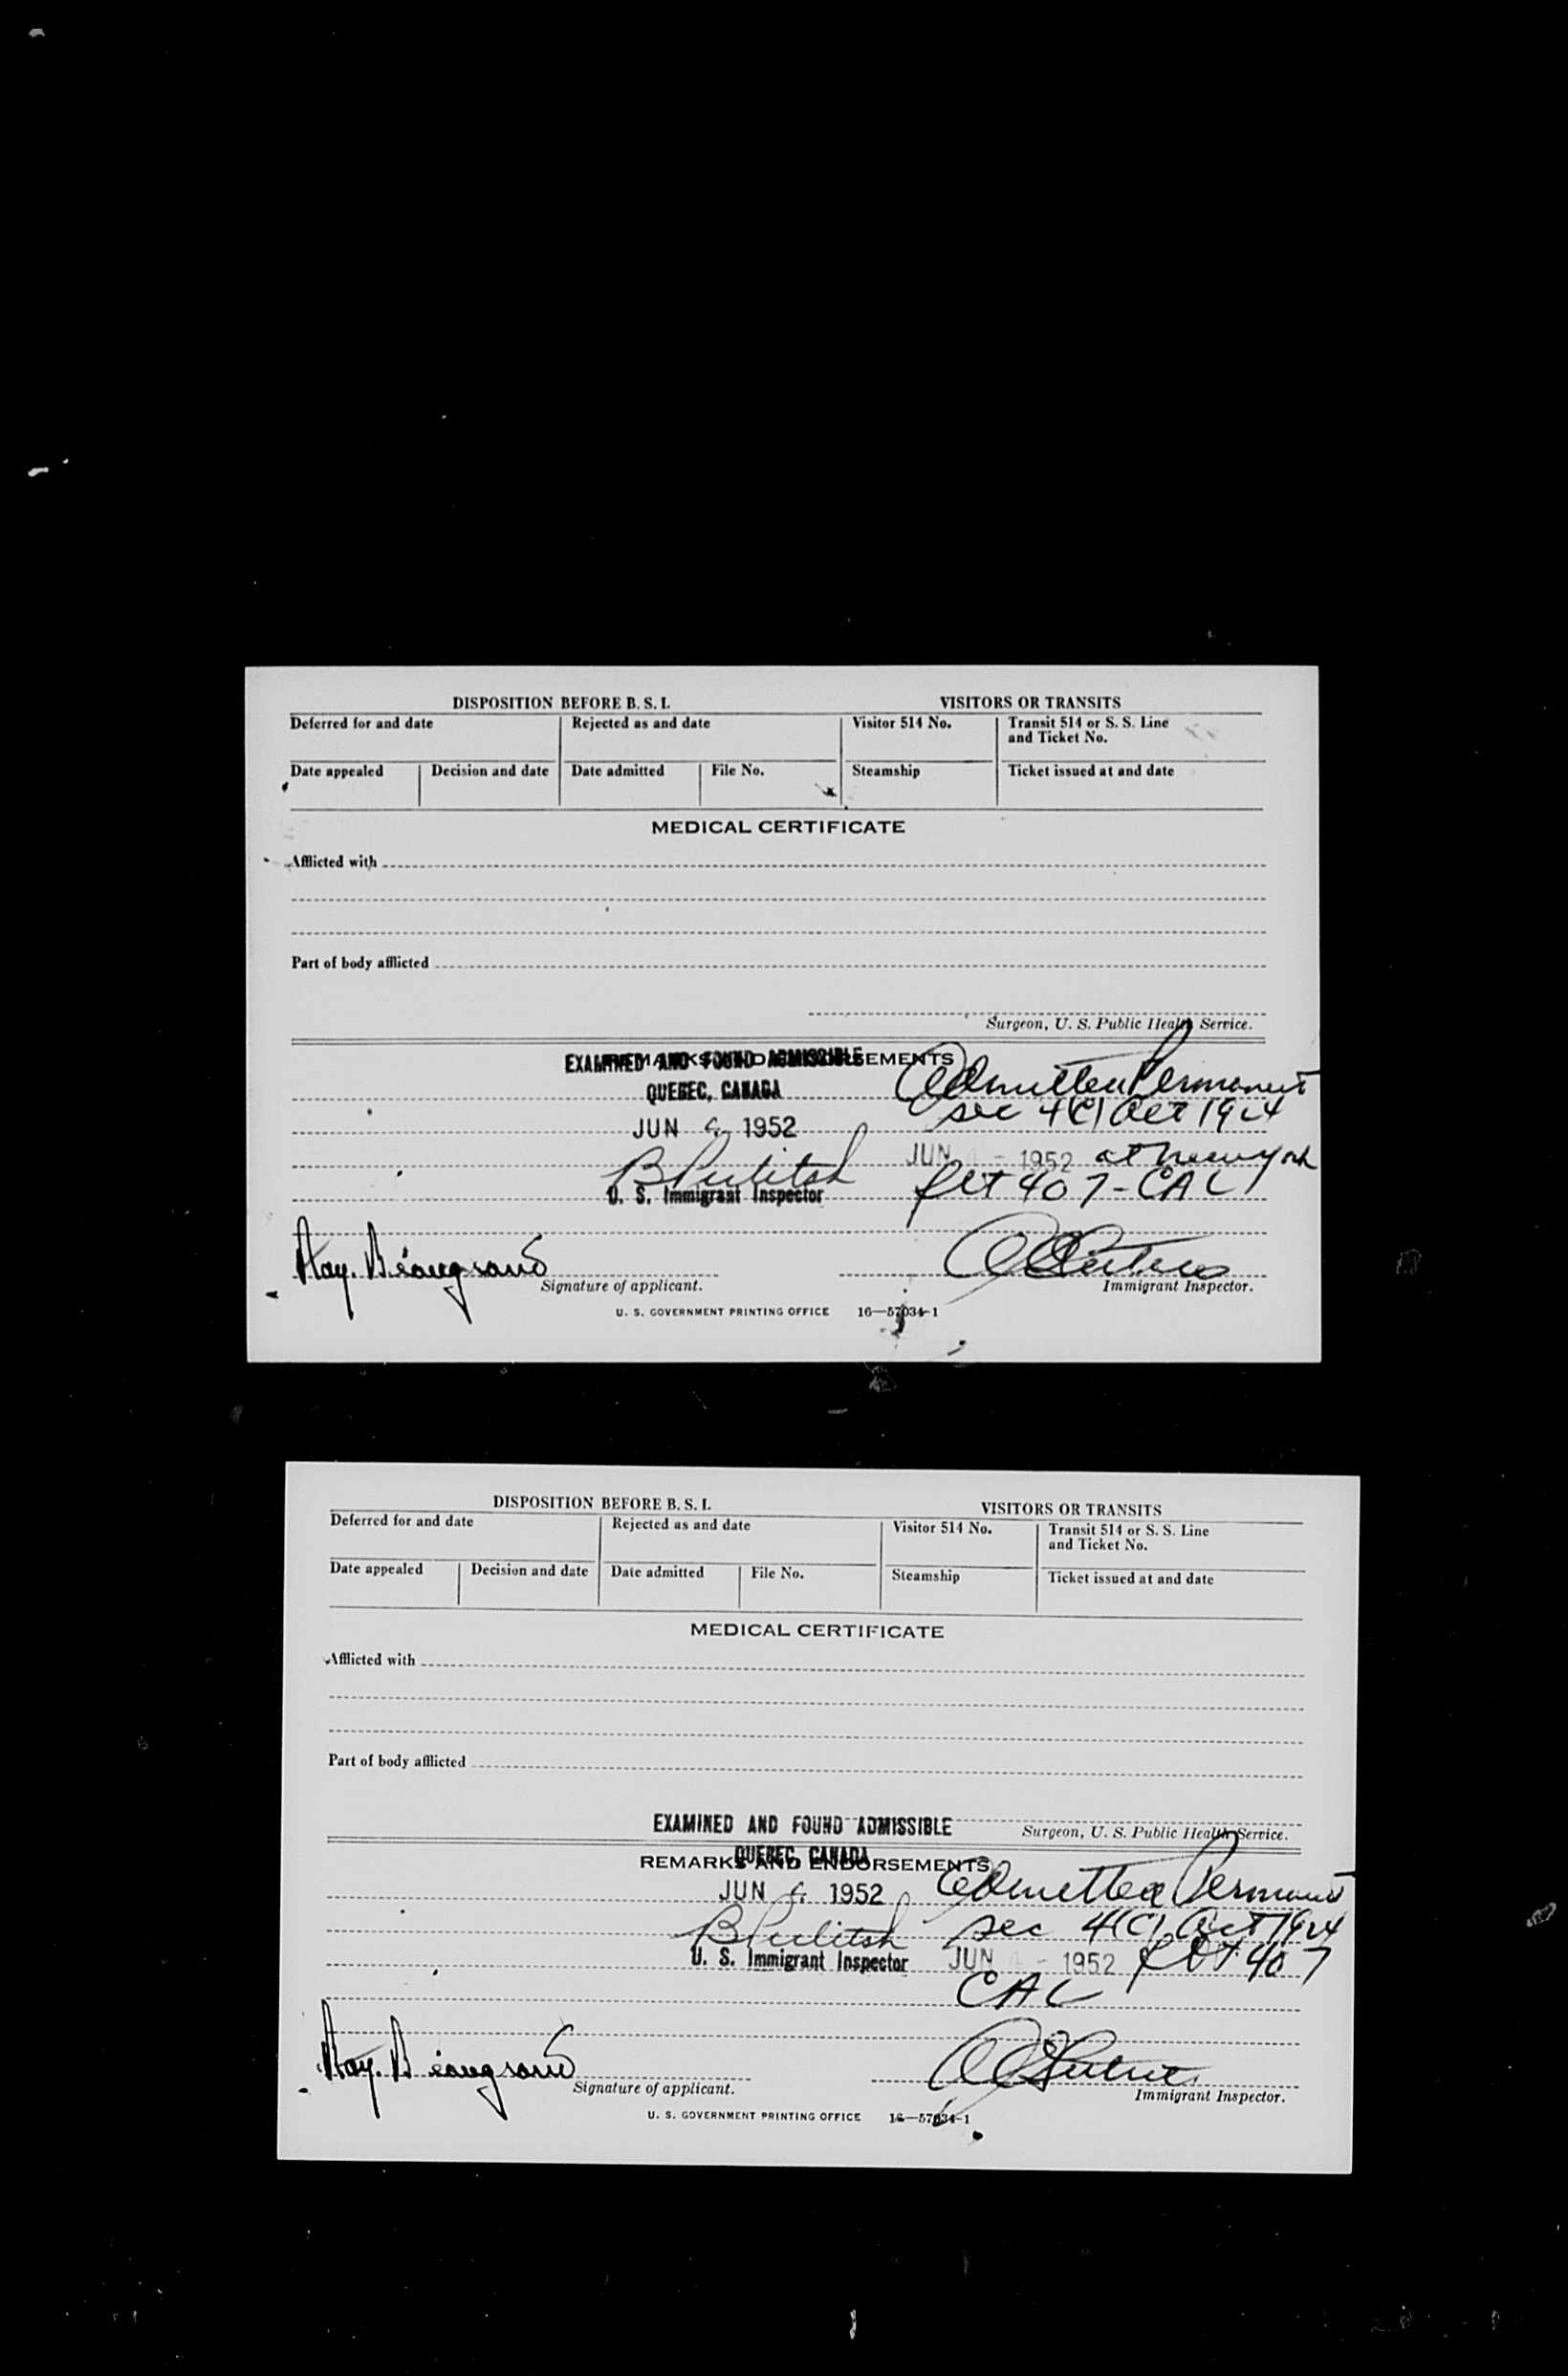 DISPOSITION BEFORE B. S. I. VISITORS OR TRANSITS
Deferred for and date Rejected as and date Visitor 514 No. Transit 514 or S. S. Line
and Ticket No.
Date appealed Decision and date Date admitted File No. Steamship Ticket issued at and date
MEDICAL CERTIFICATE
Afflicted with
Part of body afflicted
Surgeon, U. S. Public Health Service.
REMARKS AND ENDORSEMENTS
EXAMINED AND FOUND ADMISSIBLE
QUEBEC, CANADA
JUN 1952
U. S. Immigrant Inspector
Admitted Permanent
sec 4(C) Act 1924
JUN - 1952 at New York
flt 407 - CAL
Ray.
Signature of applicant. Immigrant Inspector.
U. S. GOVERNMENT PRINTING OFFICE 16—57034-1
DISPOSITION BEFORE B. S. I. VISITORS OR TRANSITS
Deferred for and date Rejected as and date Visitor 514 No. Transit 514 or S. S. Line
and Ticket No.
Date appealed Decision and date Date admitted File No. Steamship Ticket issued at and date
MEDICAL CERTIFICATE
Afflicted with
Part of body afflicted
EXAMINED AND FOUND ADMISSIBLE
Surgeon, U. S. Public Health Service.
QUEBEC, CANADA
REMARKS AND ENDORSEMENTS
JUN 1952
U. S. Immigrant Inspector
Admitted Permanent
sec 4(C) Act 1924
JUN - 1952 flt 407
CAL
Ray.
Signature of applicant. Immigrant Inspector.
U. S. GOVERNMENT PRINTING OFFICE 16—57034-1